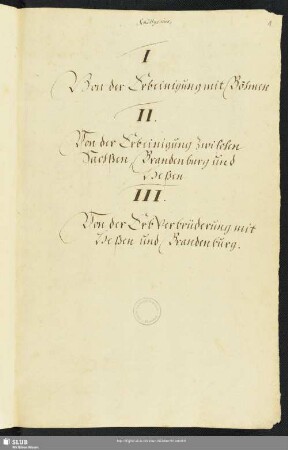 I
Von der Erbeinigung mit Böhmen
II.
Von der Erbeinigung zwischen
Sachßen, Brandenburg und
Heßen
III.
Von der ErbVerbrüderung mit
Heßen und Brandenburg.
SLUB
Wir führen Wissen.